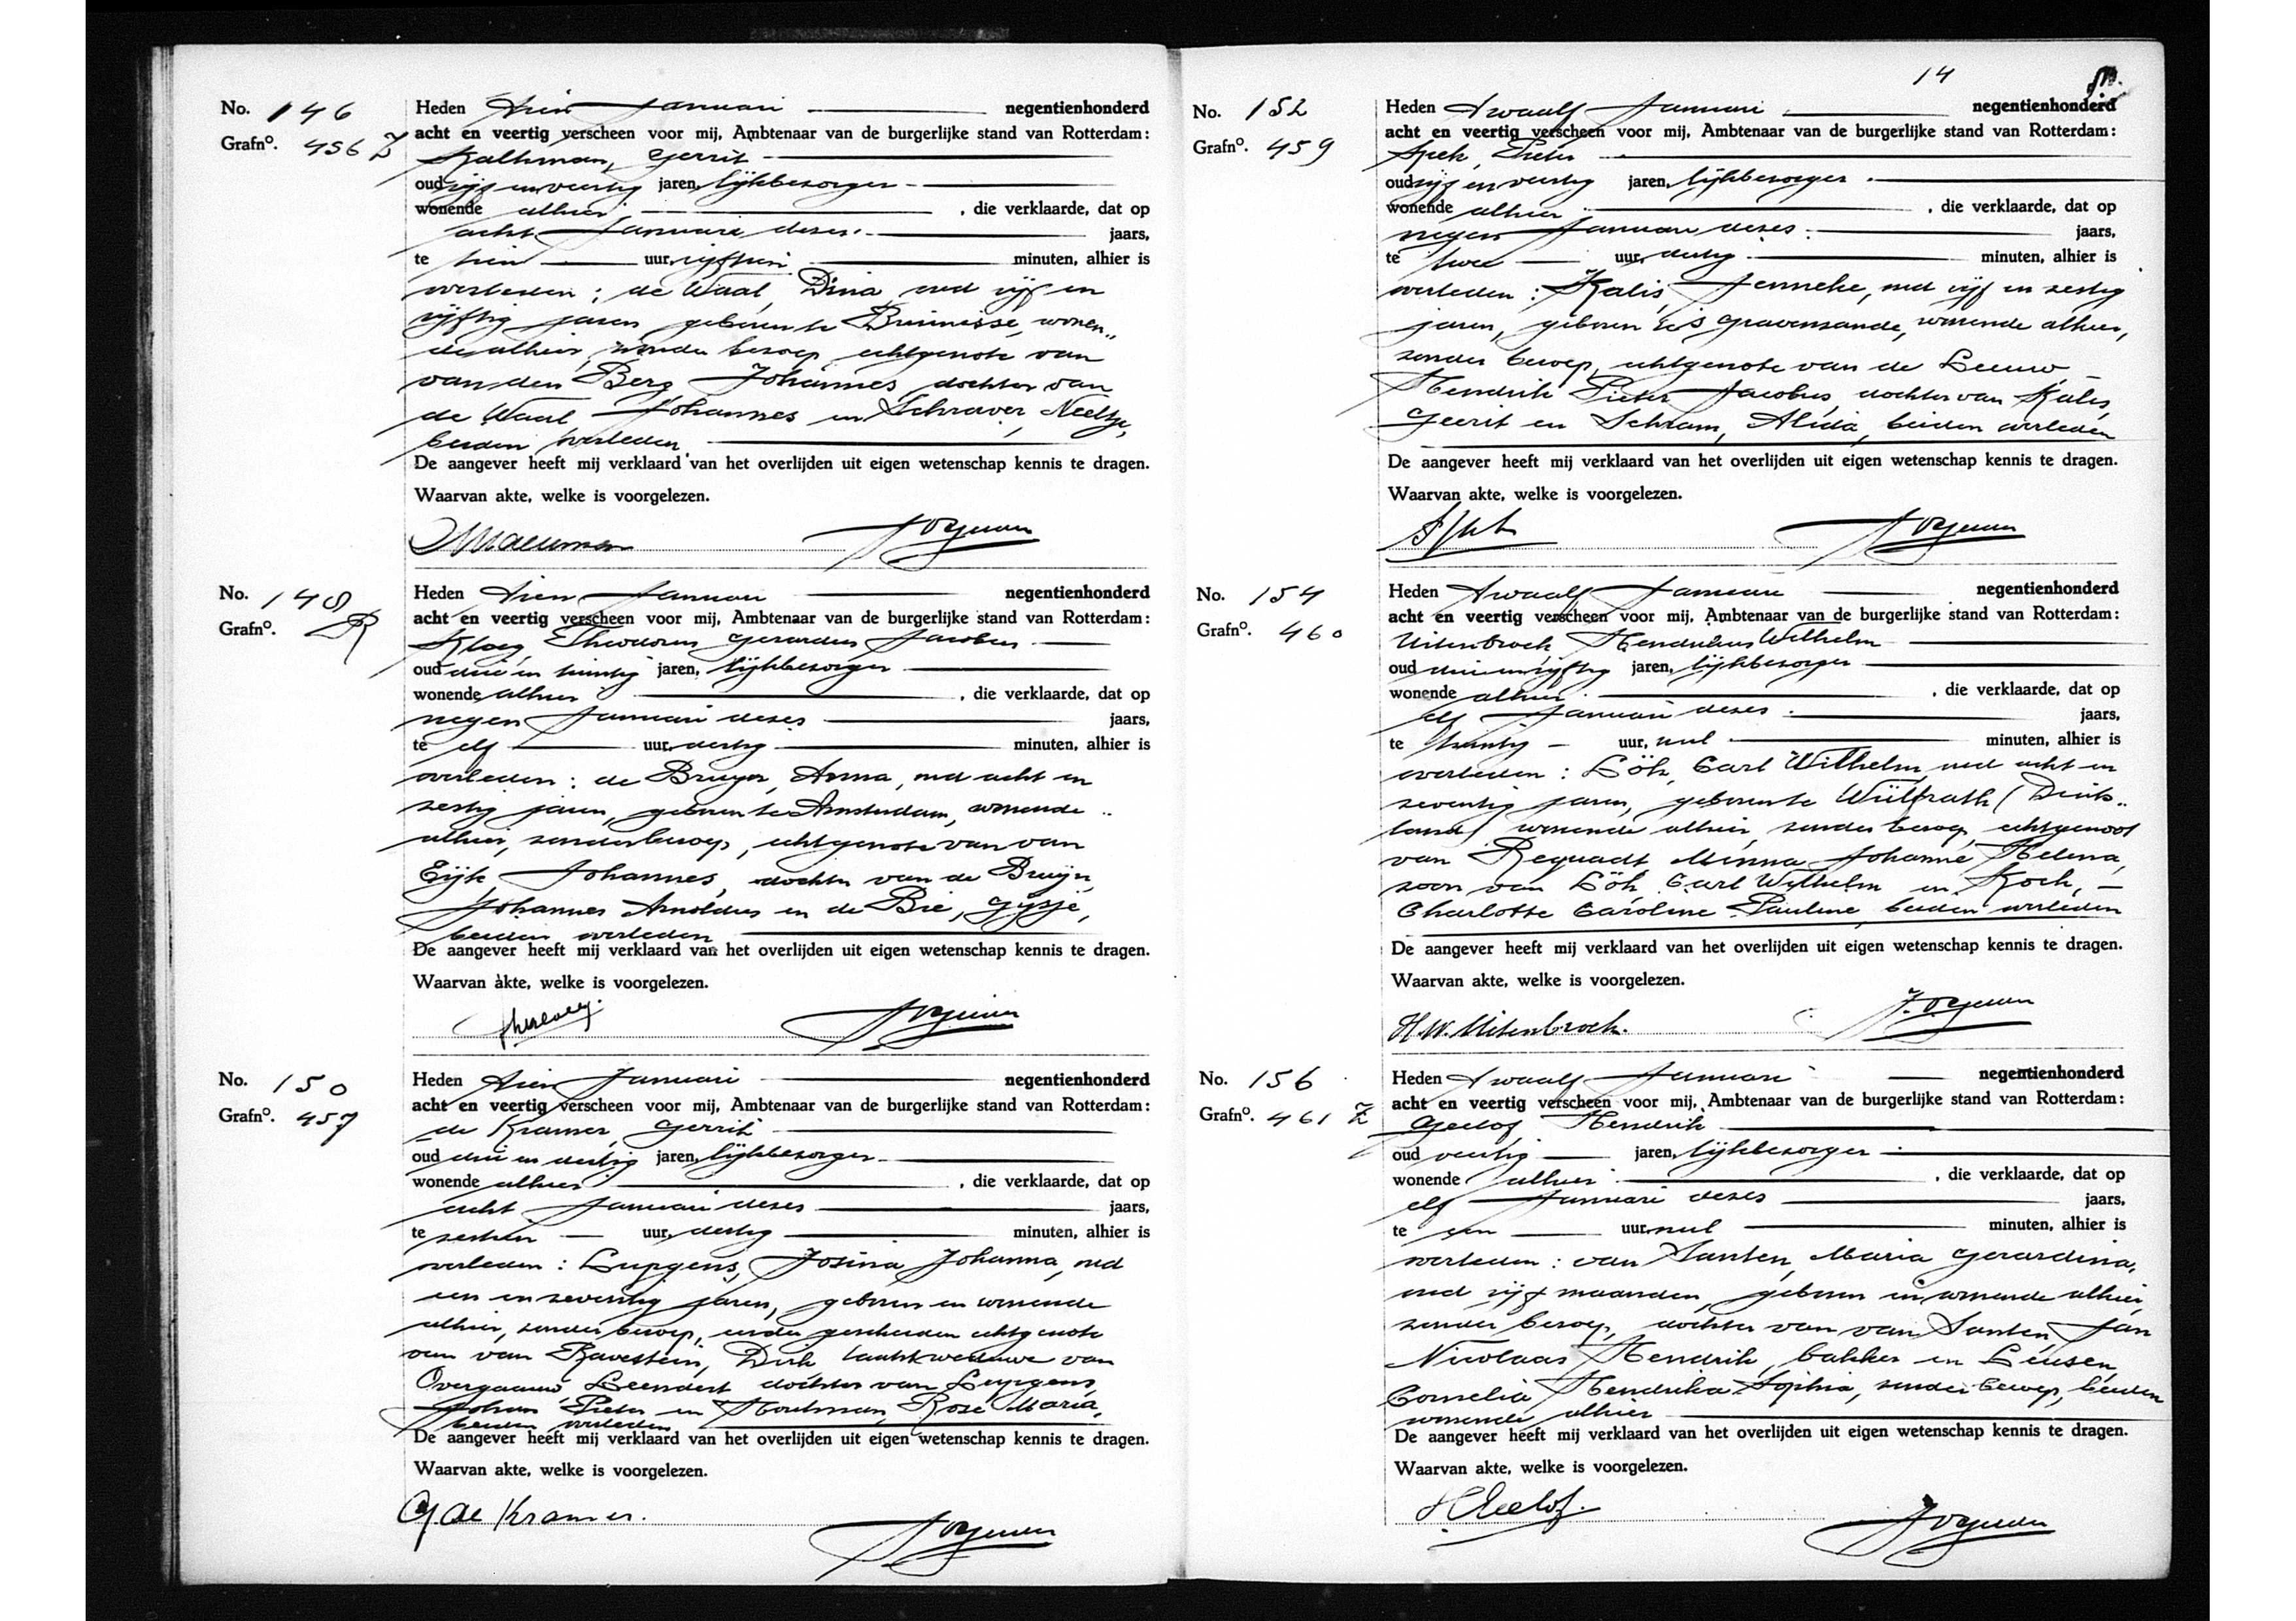 No. 146
Grafno. 456 Z
Heden tien Januari negentienhonderd
acht en veertig verscheen voor mij, Ambtenaar van de burgerlijke stand van Rotterdam:
Kalkman, Gerrit
oud vijf en veertig jaren, lijkbezorger
wonende alhier, die verklaarde, dat op
acht Januari dezes jaars,
te tien uur, vijftien minuten, alhier is
overleden: de Waal, Dina, oud vijf en
vijftig jaren, geboren te Bruinisse, wonen„
de alhier, zonder beroep, echtgenote van
van den Berg Johannes, dochter van
de Waal Johannes en Schraver, Neeltje,
beiden overleden
De aangever heeft mij verklaard van het overlijden uit eigen wetenschap kennis te dragen.
Waarvan akte, welke is voorgelezen.
No. 148
Grafno. R
Heden tien Januari negentienhonderd
acht en veertig verscheen voor mij, Ambtenaar van de burgerlijke stand van Rotterdam:
Kloeg, Theodorus Gerardus Jacobus
oud drie en twintig jaren, lijkbezorger
wonende alhier, die verklaarde, dat op
negen Januari dezes jaars,
te elf uur, dertig minuten, alhier is
overleden: de Bruijn, Anna, oud acht en
zestig jaren, geboren te Amsterdam, wonende
alhier, zonder beroep, echtgenote van van
Eijk Johannes, dochter van de Bruijn,
Johannes Arnoldus en de Bie, Gijsje,
beiden overleden
De aangever heeft mij verklaard van het overlijden uit eigen wetenschap kennis te dragen.
Waarvan akte, welke is voorgelezen.
No. 150
Grafno. 457
Heden tien Januari negentienhonderd
acht en veertig verscheen voor mij, Ambtenaar van de burgerlijke stand van Rotterdam:
de Kramer, Gerrit
oud drie en dertig jaren, lijkbezorger
wonende alhier, die verklaarde, dat op
acht Januari dezes jaars,
te zestien uur, dertig minuten, alhier is
overleden: Lurgens, Josina Johanna, oud
een en zeventig jaren, geboren en wonende
alhier, zonder beroep, eerder gescheiden echtgenote
van van Ravestein, Dirk laatst weduwe van
Overgaauw, Leendert dochter van Lurgens,
Johan Pieter en Houtman, Rose Maria,
beiden overleden
De aangever heeft mij verklaard van het overlijden uit eigen wetenschap kennis te dragen.
Waarvan akte, welke is voorgelezen.
G de Kramer.
14
No. 152
Grafno. 459
Heden twaalf Januari negentienhonderd
acht en veertig verscheen voor mij, Ambtenaar van de burgerlijke stand van Rotterdam:
Spek, Pieter
oud vijf en veertig jaren, lijkbezorger
wonende alhier, die verklaarde, dat op
negen Januari dezes jaars,
te twee uur, dertig minuten, alhier is
overleden: Kalis, Jenneke, oud vijf en zestig
jaren, geboren te 's Gravenzande, wonende alhier,
zonder beroep, echtgenote van de Leeuw
Hendrik Pieter Jacobus, dochter van Kalis,
Geerit en Schram, Alida, beiden overleden
De aangever heeft mij verklaard van het overlijden uit eigen wetenschap kennis te dragen.
Waarvan akte, welke is voorgelezen.
No. 154
Grafno. 460
Heden twaalf Januari negentienhonderd
acht en veertig verscheen voor mij, Ambtenaar van de burgerlijke stand van Rotterdam:
Uitenbroek, Hendrikus Wilhelm
oud drie en vijftig jaren, lijkbezorger
wonende alhier, die verklaarde, dat op
elf Januari dezes jaars,
te twintig uur, nul minuten, alhier is
overleden: Löh, Carl Wilhelm, oud acht en
zeventig jaren, geboren te Wülfrath (Duits„
land) wonende alhier, zonder beroep, echtgenoot
van Requadt Minna Johanne Helena,
zoon van Löh, Carl Wilhelm en Koch,
Charlotte Caroline Pauline, beiden overleden
De aangever heeft mij verklaard van het overlijden uit eigen wetenschap kennis te dragen.
Waarvan akte, welke is voorgelezen.
H.W. Uitenbroek.
No. 156
Grafno. 461 Z
Heden twaalf Januari negentienhonderd
acht en veertig verscheen voor mij, Ambtenaar van de burgerlijke stand van Rotterdam:
Geelof, Hendrik
oud veertig jaren, lijkbezorger
wonende alhier, die verklaarde, dat op
elf Januari dezes jaars,
te een uur, nul minuten, alhier is
overleden: van Santen, Maria Gerardina,
oud vijf maanden, geboren en wonende alhier,
zonder beroep, dochter van van Santen, Jan
Nicolaas Hendrik, bakker en Leusen,
Cornelia Hendrika Sophia, zonder beroep, beiden
wonende alhier
De aangever heeft mij verklaard van het overlijden uit eigen wetenschap kennis te dragen.
Waarvan akte, welke is voorgelezen.
H Geelof.